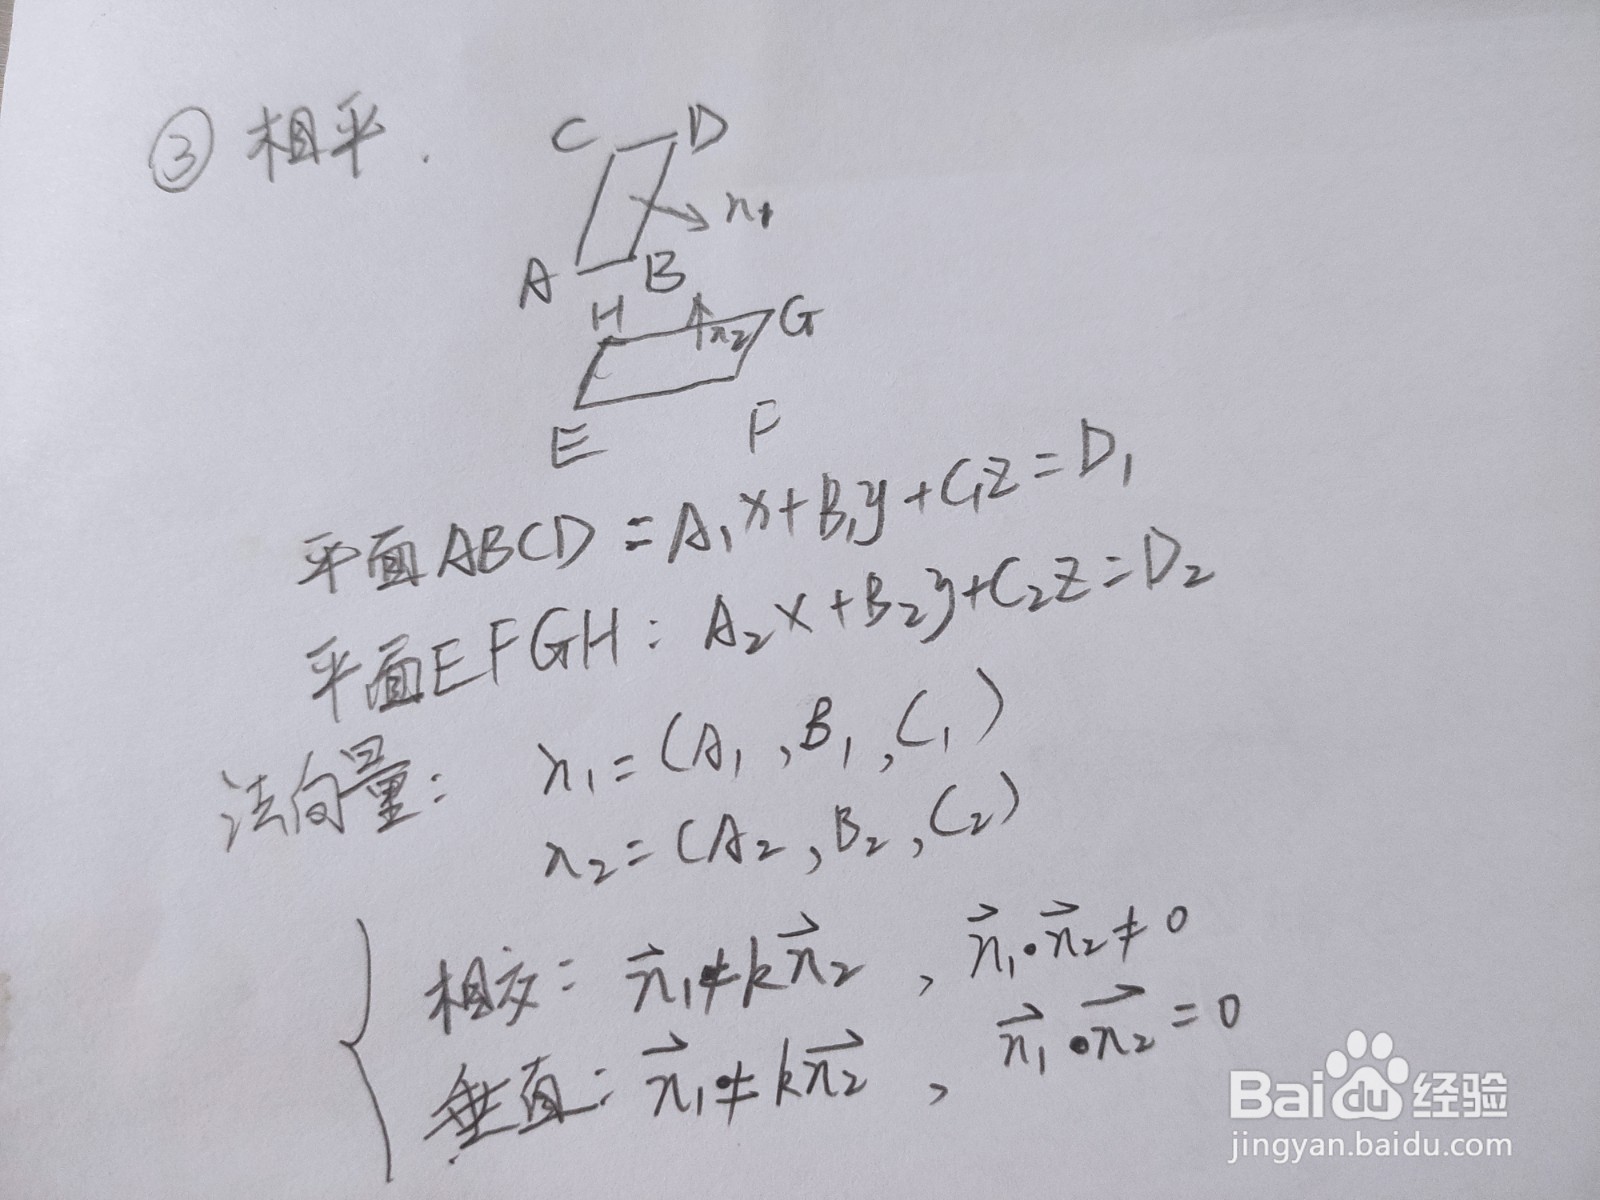 ③ 相平.
C D
n₁
A B
H G
n₂
E F
平面ABCD = A₁x+B₁y+C₁z=D₁
平面EFGH: A₂x+B₂y+C₂z=D₂
法向量: n₁=(A₁,B₁,C₁)
n₂=(A₂,B₂,C₂)
相交: n⃗₁≠kn⃗₂, n⃗₁·n⃗₂≠0
垂直: n⃗₁≠kn⃗₂, n⃗₁·n⃗₂=0
Bai du 经验
jingyan.baidu.com